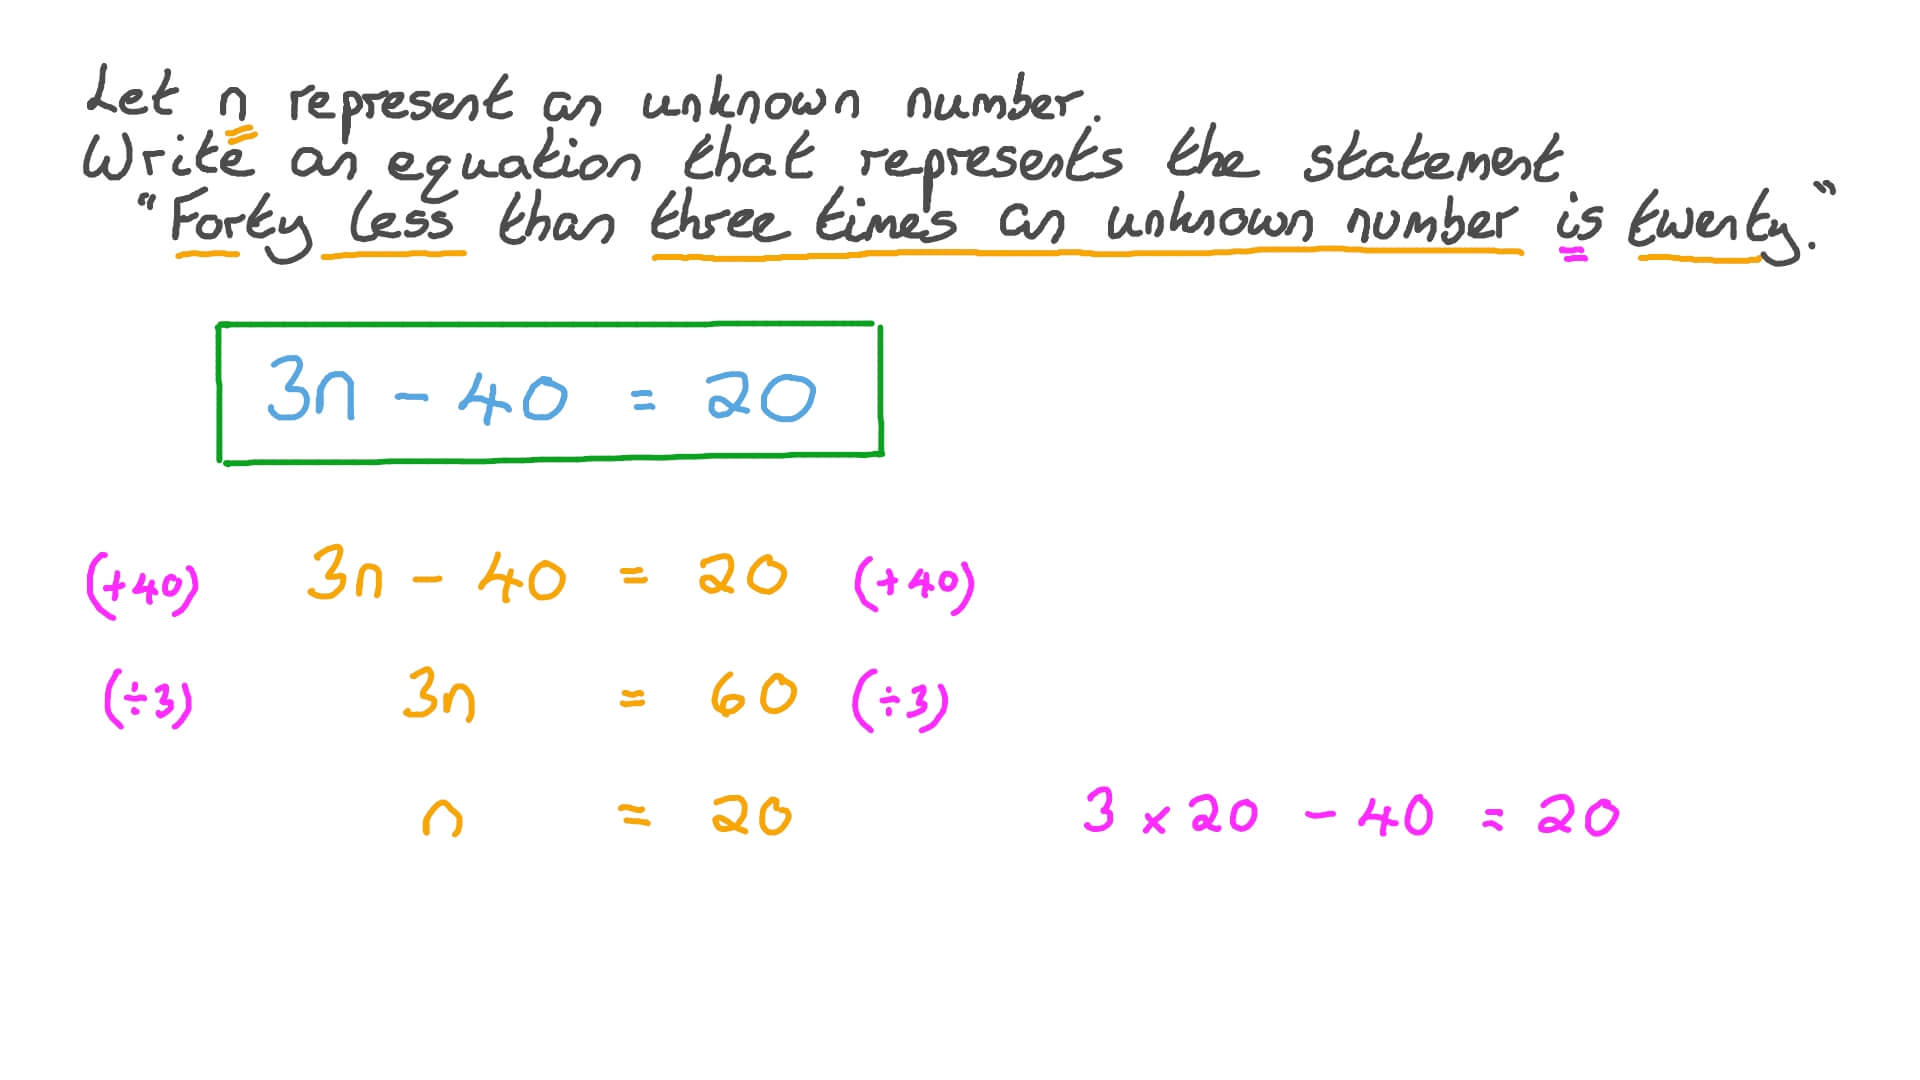 Let n represent an unknown number.
Write an equation that represents the statement
"Forty less than three times an unknown number is twenty."
3n - 40 = 20
(+40) 3n - 40 = 20 (+40)
(÷3) 3n = 60 (÷3)
n = 20 3 × 20 - 40 = 20